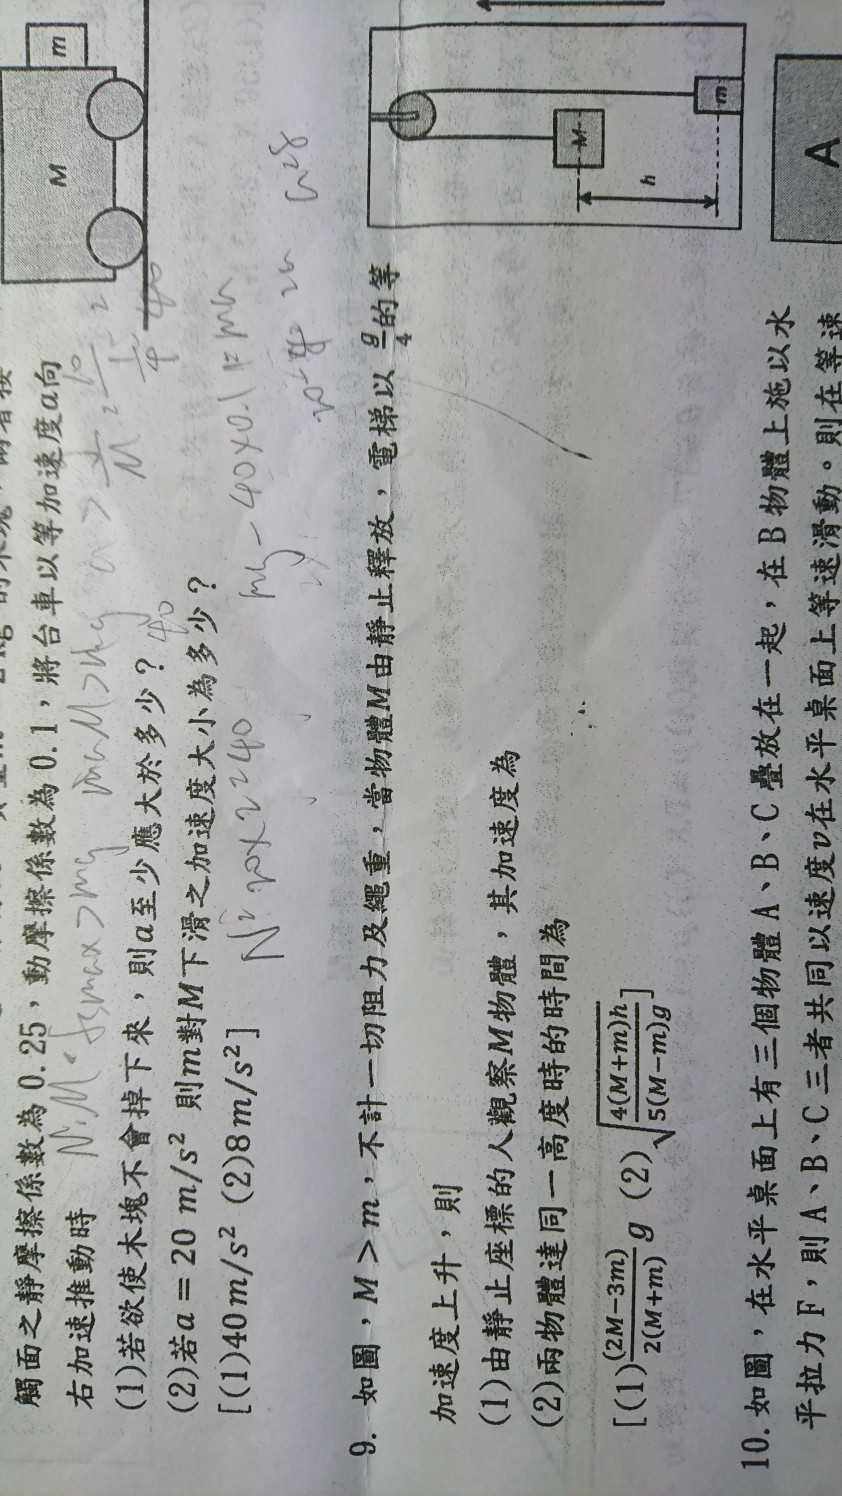 觸面之靜摩擦係數為 0.25，動摩擦係數為 0.1，將台車以等加速度a向
右加速推動時
(1)若欲使木塊不會掉下來，則a至少應大於多少？ 40
(2)若a = 20 m/s² 則m對M下滑之加速度大小為多少？
[(1)40m/s² (2)8m/s²]
N = 20×2=40
mg - 40×0.1 = ma
M
m
9. 如圖，M > m，不計一切阻力及繩重，當物體M由靜止釋放，電梯以 g/4 的等
加速度上升，則
(1)由靜止座標的人觀察M物體，其加速度為
(2)兩物體達同一高度時的時間為
[(1) (2M−3m)/2(M+m) g (2) √4(M+m)h/5(M−m)g]
M
m
h
10. 如圖，在水平桌面上有三個物體 A、B、C 疊放在一起，在 B 物體上施以水
平拉力 F，則 A、B、C 三者共同以速度v在水平桌面上等速滑動。則在等速
A